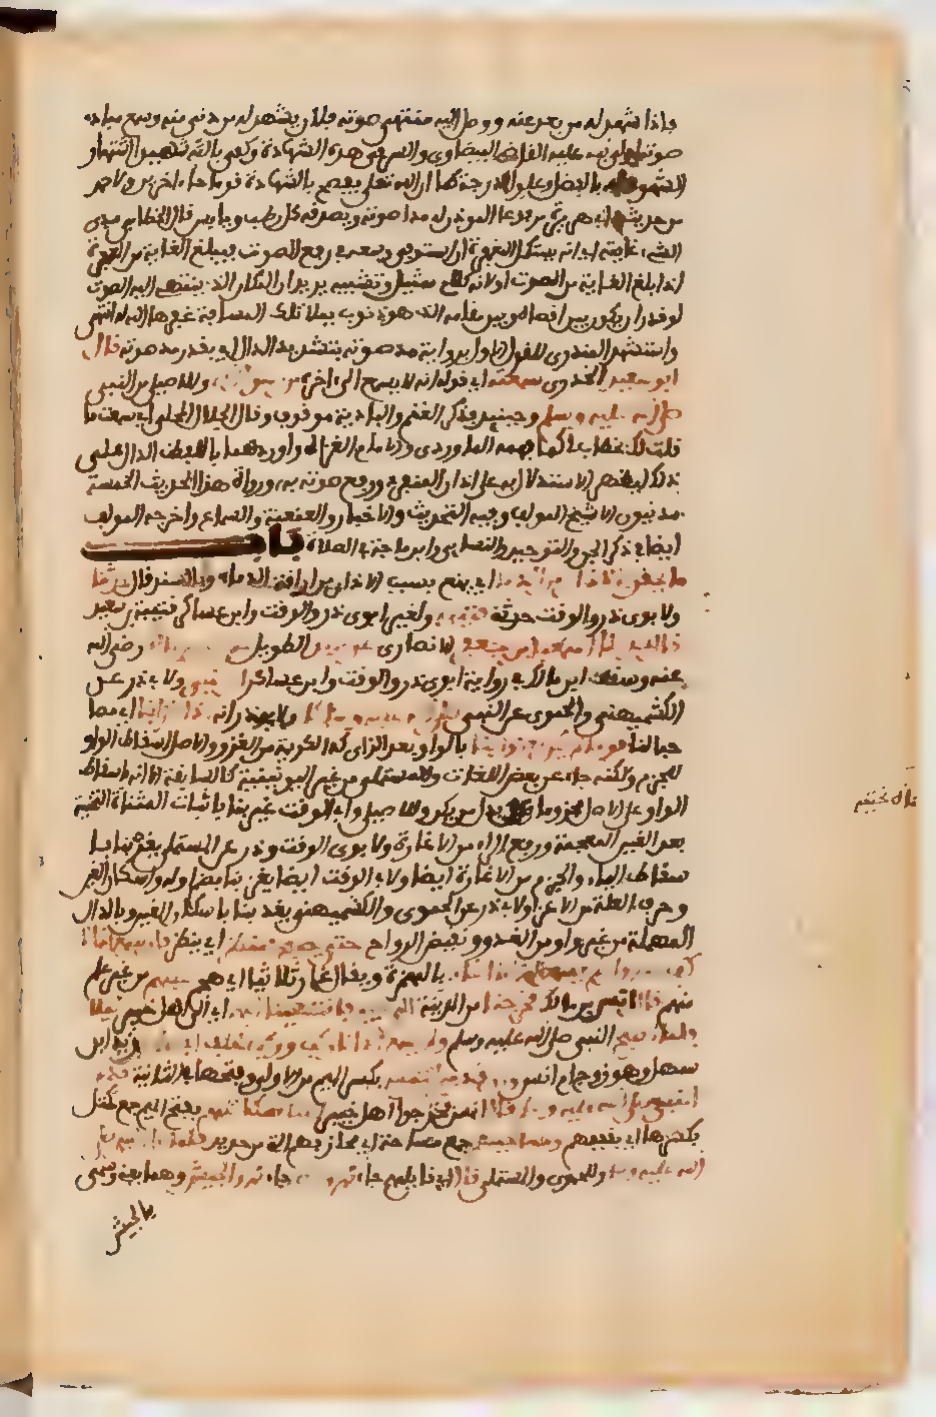 فإذا شهد له من بعد عنه ووصل إليه منتهى صوته فلأن يشهد له من دنى منه وسمع مبادي
صوته أولى نبه عليه القاضي البيضاوي والسر في هذه الشهادة وكفى بالله شهيدا اشتهار
المشهود له بالفضل وعلو الدرجة كما أن الله تعالى يفضح بالشهادة قوما جاء اخرين ولاحمد
من حديث أبي هريرة مرفوعا المؤذن له مدا صوته ويصدقه كل رطب ويابس قال الخطابي مدى
الشيء غايته أي أنه يستكمل المغفرة إذا استوفى وسعه في رفع الصوت فيبلغ الغاية من المغفرة
إذا بلغ الغاية من الصوت أو لأنه كلام تمثيل وتشبيه يريد أن المكان الذي ينتهي إليه الصوت
لو قدر أن يكون بين أقصاه وبين مقامه الذي هو فيه ذنوب تملا تلك المسافة غفرها الله له انتهى
واستشهد المنذري للقول الأول برواية مد صوته بتشديد الدال أي بقدر مد صوته قال
أبو سعيد الخدري سمعته أي قوله أنه لا يسمع إلى اخره من رسول الله وللأصيلي من النبي
صلى الله عليه وسلم وحينئذ فذكر الغنم والبادية موقوف وقال الجلال المحلي أي سمعت ما
قلت لك بخطاب لي كما فهمه الماوردي والإمام الغزالي وأورده باللفظ الدال على
ذلك ليظهر الاستدلال به على أذان المنفرد ورفع صوته به ورواة هذا الحديث الخمسة
مدنيون إلا شيخ المؤلف وفيه التحديث والإخبار والعنعنة والسماع وأخرجه المؤلف
أيضا في ذكر الجن والتوحيد والنسائي وابن ماجة في الصلاة باب
ما يحقن بالأذان من الدماء أي يمنع بسبب الأذان من إراقة الدماء وبالسند قال حدثنا
ولأبوي ذر والوقت حدثني قتيبة ولغير أبوي ذر والوقت وابن عساكر قتيبة بن سعيد
قال حدثنا إسماعيل بن جعفر الأنصاري عن حميد الطويل عن أنس بن مالك رضي الله
عنه وسقط ابن مالك في رواية أبوي ذر والوقت وابن عساكر النبي ولأبي ذر عن
الكشميهني والحموي عن النبي صلى الله عليه وسلم ولأبي ذر أنه كان إذا غزا بنا أي مصا
حبا لنا قوما لم يكن يغزو بنا بالواو بعد الزاي كذا لكريمة من الغزو والأصل إسقاط الواو
للجزم ولكنه جاء على بعض اللغات وللمستملي من غير اليونينية كالسابقة إلا أنه بإسقاط
الواو على الأصل مجزوما بدل من يكن وللأصيلي وأبي الوقت يغير بنا بإثبات المثناة التحتية
بعد الغين المعجمة ورفع الراء من الإغارة ولأبوي الوقت وذر عن المستملي يغر بنا با
سقاط الياء والجزم من الإغارة أيضا ولأبي الوقت أيضا يغر بنا بضم أوله وإسكان الغين
وحذف العلة من الإغزاء ولأبي ذر عن الحموي والكشميهني يغد بنا بإسكان الغين وبالدال
المهملة من غير واو من الغدو نقيض الرواح حتى يصبح وينظر أي ينتظر فإن سمع أذانا
كف عنهم وإن لم يسمع أذانا أغار بالهمزة ويقال غار ثلاثيا أي هجم عليهم من غير علم
منهم قال أنس بن مالك فخرجنا من المدينة إلى خيبر فانتهينا إليهم أي إلى أهل خيبر ليلا
فلما أصبح النبي صلى الله عليه وسلم ولم يسمع أذانا ركب وركبت خلف أبي طلحة زيد ابن
سهل وهو زوج أم أنس وإن قدمي لتمس بكسر الميم من الأولى وفتحها في الثانية قدم
النبي صلى الله عليه وسلم قال أنس فخرجوا أهل خيبر إلينا بمكاتلهم بفتح الميم جمع مكتل
بكسرها أي بقففهم ومساحيهم جمع مسحاة أي مجارفهم التي من حديد فلما رأوا النبي صلى
الله عليه وسلم وللحموي والمستملي قال أي قائلهم جاء محمد والله جاء محمد والجيش وهما بمعنى وسمي
بالجيش